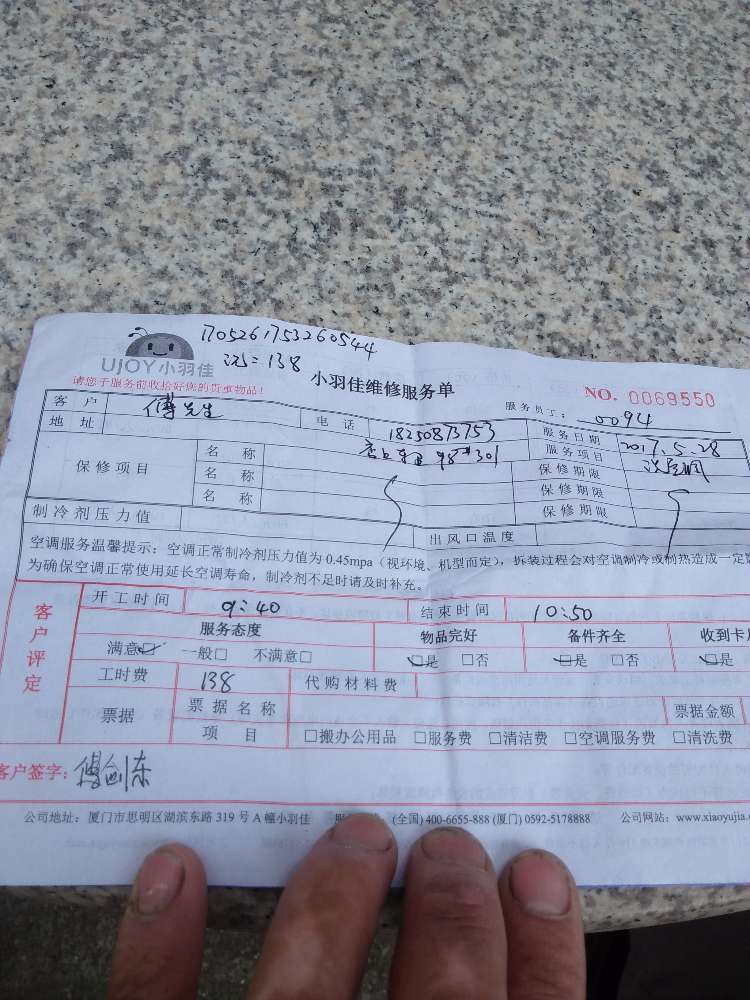 1705261753260544
UJOY小羽佳
沉=138
请您于服务前收拾好您的贵重物品！
小羽佳维修服务单
NO. 0069550
服务员工： 0094
客 户 傅先生 电 话 18250873753 服务日期 2017.5.28
地 址 98#301 服务项目
保修项目 名 称 保修期限
名 称 保修期限
名 称 保修期限
制冷剂压力值 出风口温度
空调服务温馨提示：空调正常制冷剂压力值为0.45mpa（视环境、机型而定），拆装过程会对空调制冷或制热造成一定
为确保空调正常使用延长空调寿命，制冷剂不足时请及时补充。
客户评定
开工时间 9:40 结束时间 10:50
服务态度 物品完好 备件齐全 收到卡
满意☑ 一般□ 不满意□ ☑是 □否 ☑是 □否 ☑是
工时费 138 代购材料费
票据 票据名称 票据金额
项 目 □搬办公用品 □服务费 □清洁费 □空调服务费 □清洗费
客户签字：傅剑东
公司地址：厦门市思明区湖滨东路319号A幢小羽佳 (全国) 400-6655-888 (厦门) 0592-5178888 公司网站：www.xiaoyujia.